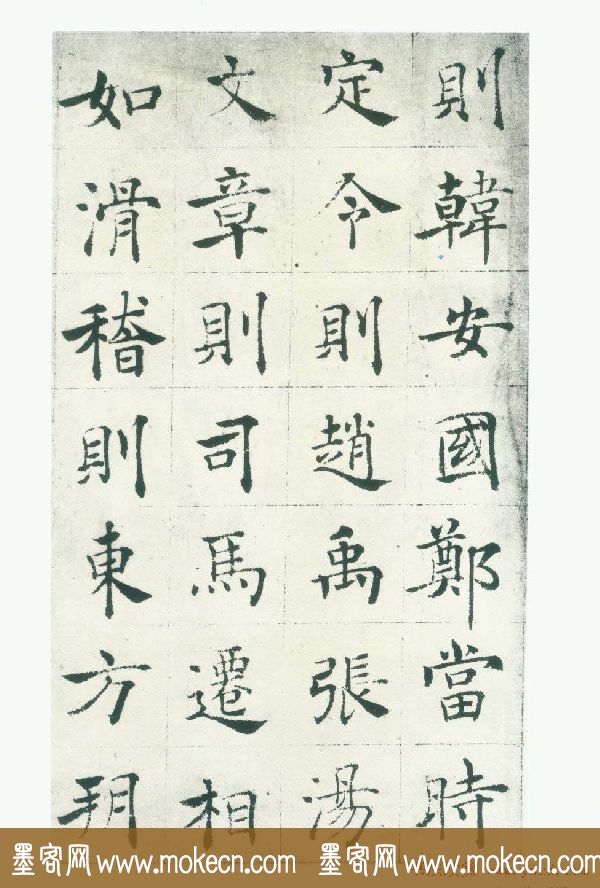 則韓安國鄭當時
定令則趙禹張湯
文章則司馬遷相
如滑稽則東方朔
墨客网 www.mokecn.com 墨客网 www.mokecn.com 墨客网 www.mokecn.com